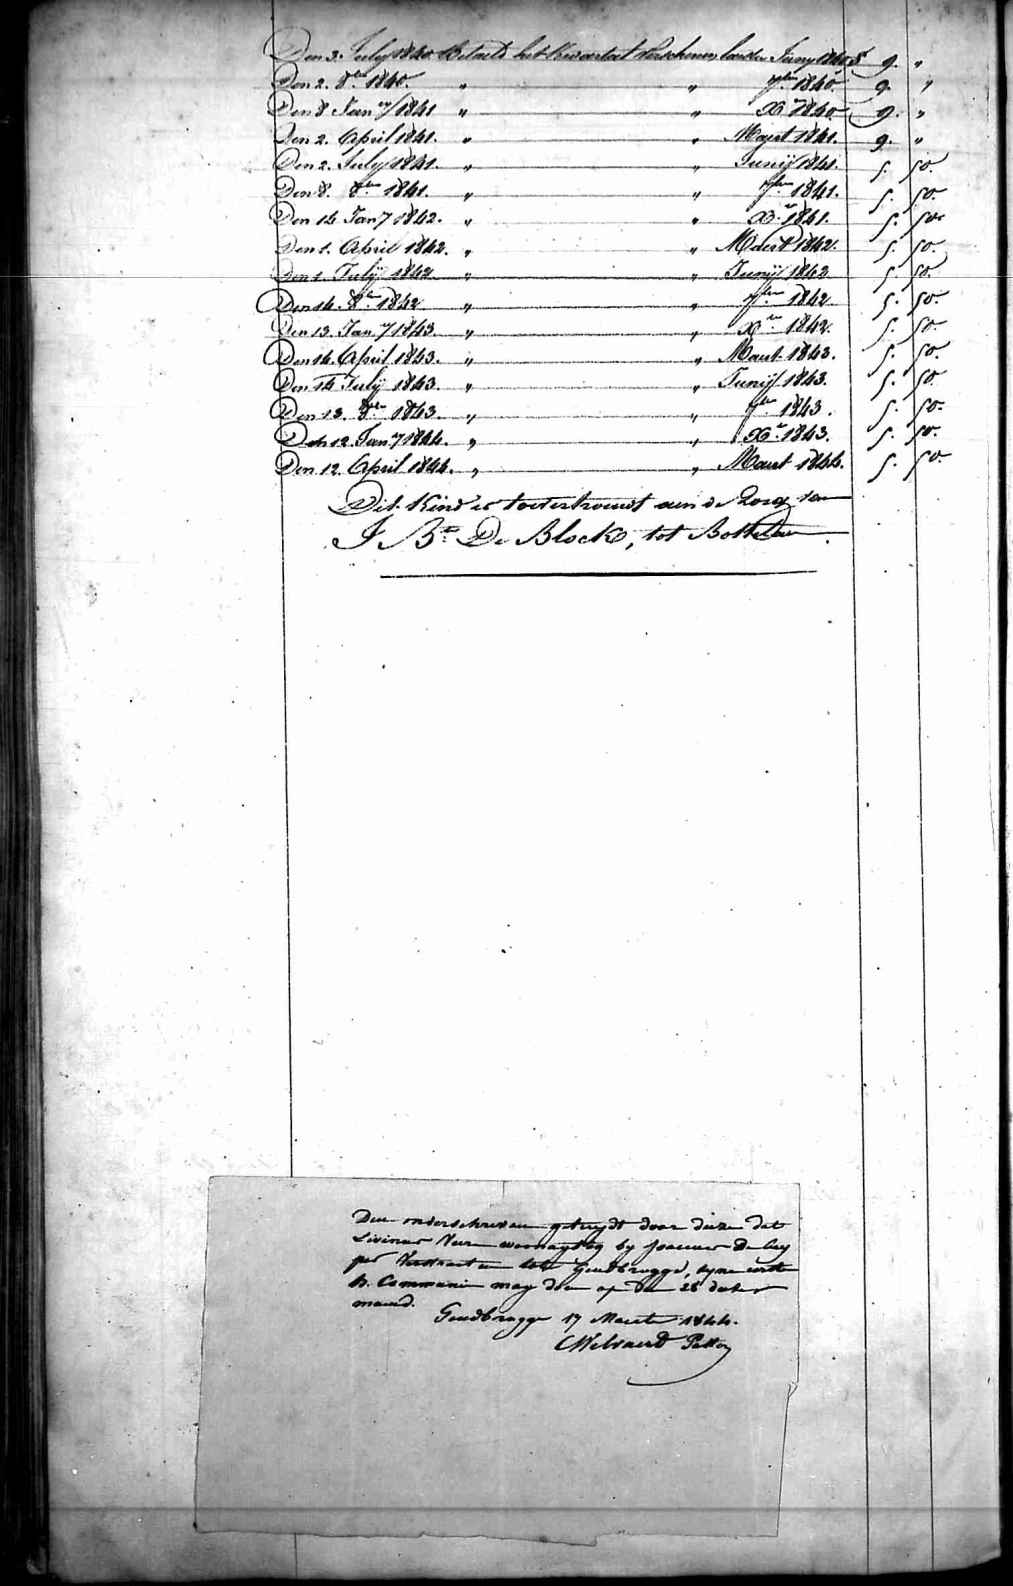 Den 3. July 1840 Betaeld het kwartael verschenen laesten Juny 1840 f 9. "
Den 2. 8bre 1840. " " 7bre 1840. 9. "
Den 8 Jany 1841 " " Xr 1840 9. "
Den 2. April 1841. " " Maert 1841. 9. "
Den 2. July 1841. " " Junij 1841. 5. 50.
Den 8. 8bre 1841. " " 7bre 1841. 5. 50.
Den 14 Jany 1842. " " Xr 1841. 5. 50
Den 1. April 1842. " " Maert 1842. 5. 50.
Den 1. Julij 1842 " " Junij 1842 5. 50
Den 14. 8bre 1842 " " 7bre 1842 5. 50
Den 13. Jany 1843. " " Xbre 1842. 5. 50
Den 14. April 1843. " " Maert 1843. 5. 50.
Den 14 Julij 1843. " " Junij 1843. 5. 50
Den 13. 8bre 1843. " " 7bre 1843. 5. 50.
Den 12. Jany 1844. " " Xr 1843. 5. 50.
Den 12. April 1844. " " Maert 1844. 5. 50.
Dit Kind is toevertrouwt aen de Zorg van
J. Bte De Block, tot Bottelaer.
Den onderschreven getuygt door dezen dat
Livinus Veere woonagtig by Joannes De
tot Gendbrugge, zyne eerste
H. Communie mag doen op den 25 dezer
maend.
Gendbrugge 17 Maerte 1844.
C Welvaert Pastor